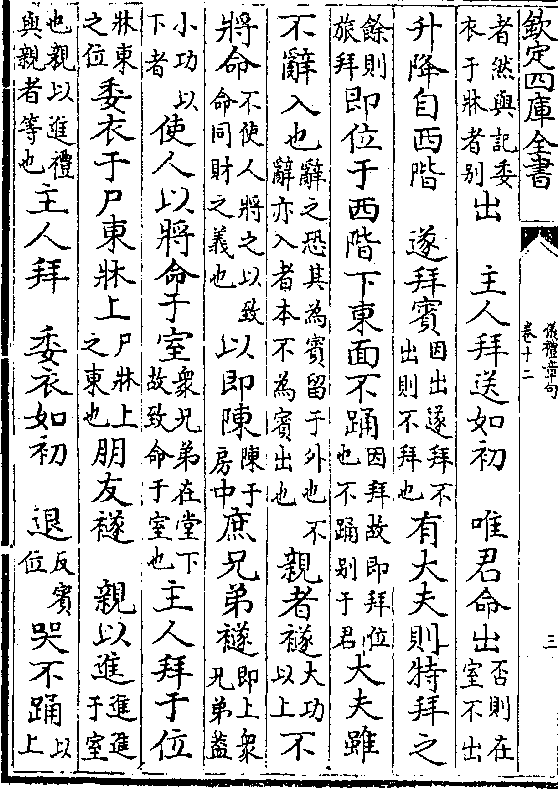 欽定四庫全書
儀禮章句
卷十二
三
者然與記委衣于牀者别出 主人拜送如初 唯君命出否則在室不出
升降自西階 遂拜賓因出遂拜不出則不拜也有大夫則特拜之
餘則旅拜即位于西階下東面不踊因拜故即拜位也不踊别于君大夫雖
不辭入也辭之恐其為賓留于外也不辭亦入者本不為賓出也親者襚大功以上不
將命不使人將之以致命同財之義也以即陳陳于房中庶兄弟襚即上衆兄弟葢
小功以下者使人以將命于室衆兄弟在堂下故致命于室也主人拜于位
牀東之位委衣于尸東牀上尸牀上之東也朋友襚 親以進進進于室
也親以進禮與親者等也主人拜 委衣如初 退反賓位哭不踊以上